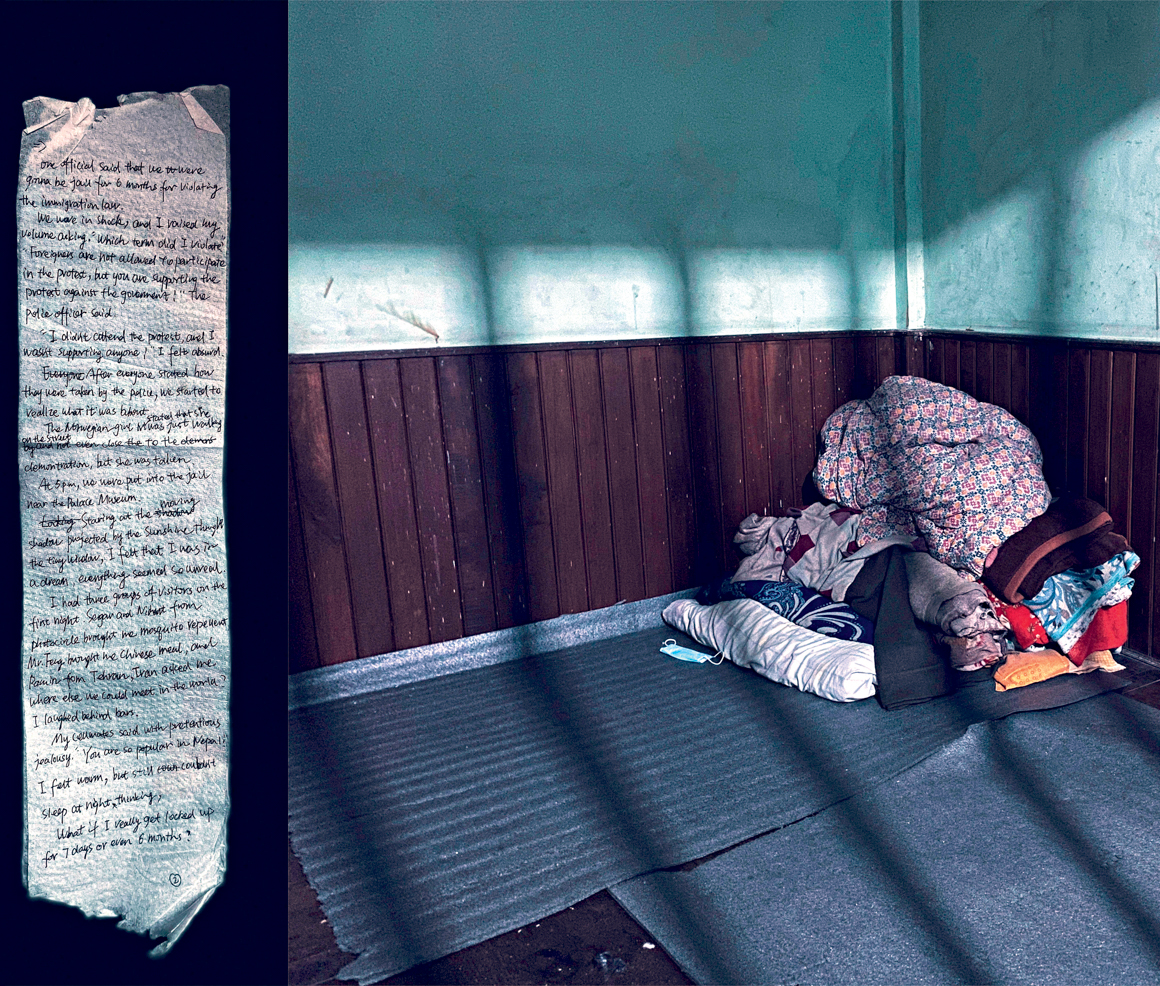 one official said that we were
gonna be jail for 6 months for violating
the immigration law.
We were in shock, and I raised my
volume asking. "Which term did I violate"
"Foreigners are not allowed to participate
in the protest, but you are supporting the
protest against the government!" The
police officer said.
"I didn't attend the protest, and I
wasn't supporting anyone!" I felt absurd.
Everyone After everyone stated how
they were taken by the police, we started to
realize what it was about.
The Norwegian girl stated that she was just walking
on the street
not even close to the
demonstration, but she was taken.
At 5pm, we were put into the jail
near the Palace Museum.
Looking Staring at the moving
shadow projected by the sunshine through
the tiny window, I felt that I was in
a dream everything seemed so unreal.
I had three groups of visitors on the
first night. and from
photocircle brought me mosquito repellent
Mr. Feng brought me Chinese meal, and
from Tehran, Iran asked me.
where else we could meet in the world?
I laughed behind bars.
My cellmates said with pretentious
jealousy. "You are so popular in Nepal!"
I felt warm, but still couldn't
sleep at night, thinking,
What if I really get locked up
for 7 days or even 6 months?
②